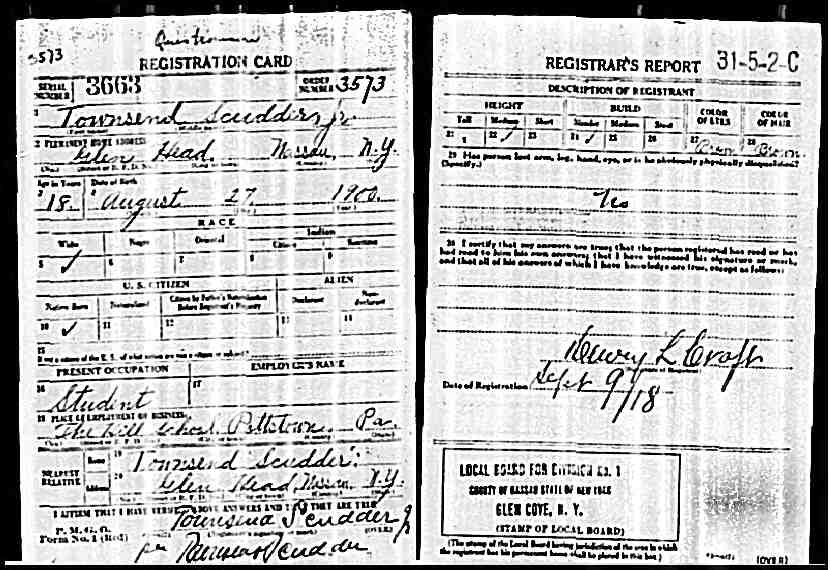 3573
REGISTRATION CARD
SERIAL NUMBER 3663 ORDER NUMBER 3573
1 Townsend Scudder, jr.
2 PERMANENT HOME ADDRESS
Glen Head, Nassau, N.Y.
Age in Years Date of Birth
18. August 27 1900.
RACE
White Negro Oriental Indian
Citizen
5 ✓ 6 7 8 9
U. S. CITIZEN ALIEN
Native Born Naturalized Citizen by Father's Naturalization Before Registrant's Majority Declarant Non-declarant
10 ✓ 11 12 13 14
15
If not a citizen of the U. S. of what nation are you a citizen or subject?
PRESENT OCCUPATION EMPLOYER'S NAME
16 17
Student
18 PLACE OF EMPLOYMENT OR BUSINESS
The Hill School, Pottstown, Pa.
NEAREST RELATIVE Name 19 Townsend Scudder.
Address 20 Glen Head, Nassau, N.Y.
I AFFIRM THAT I HAVE VERIFIED ABOVE ANSWERS AND THAT THEY ARE TRUE
P. M. G. O.
Form No. 1 (Red) Townsend Scudder Jr (OVER)
Townsend Scudder
REGISTRAR'S REPORT 31-5-2-C
DESCRIPTION OF REGISTRANT
HEIGHT BUILD COLOR OF EYES COLOR OF HAIR
Tall Medium Short Slender Medium Stout
21 22 ✓ 23 24 ✓ 25 26 27 Brown 28 Brown
29 Has person lost arm, leg, hand, eye, or is he obviously physically disqualified?
(Specify.)
No
30 I certify that my answers are true; that the person registered has read or has
had read to him his own answers; that I have witnessed his signature or mark,
and that all of his answers of which I have knowledge are true, except as follows:
Date of Registration Sept 9/18
LOCAL BOARD FOR DIVISION NO. 1
COUNTY OF NASSAU STATE OF NEW YORK
GLEN COVE, N. Y.
(STAMP OF LOCAL BOARD)
(The stamp of the Local Board having jurisdiction of the area in which
the registrant has his permanent home shall be placed in this box.)
(OVER)